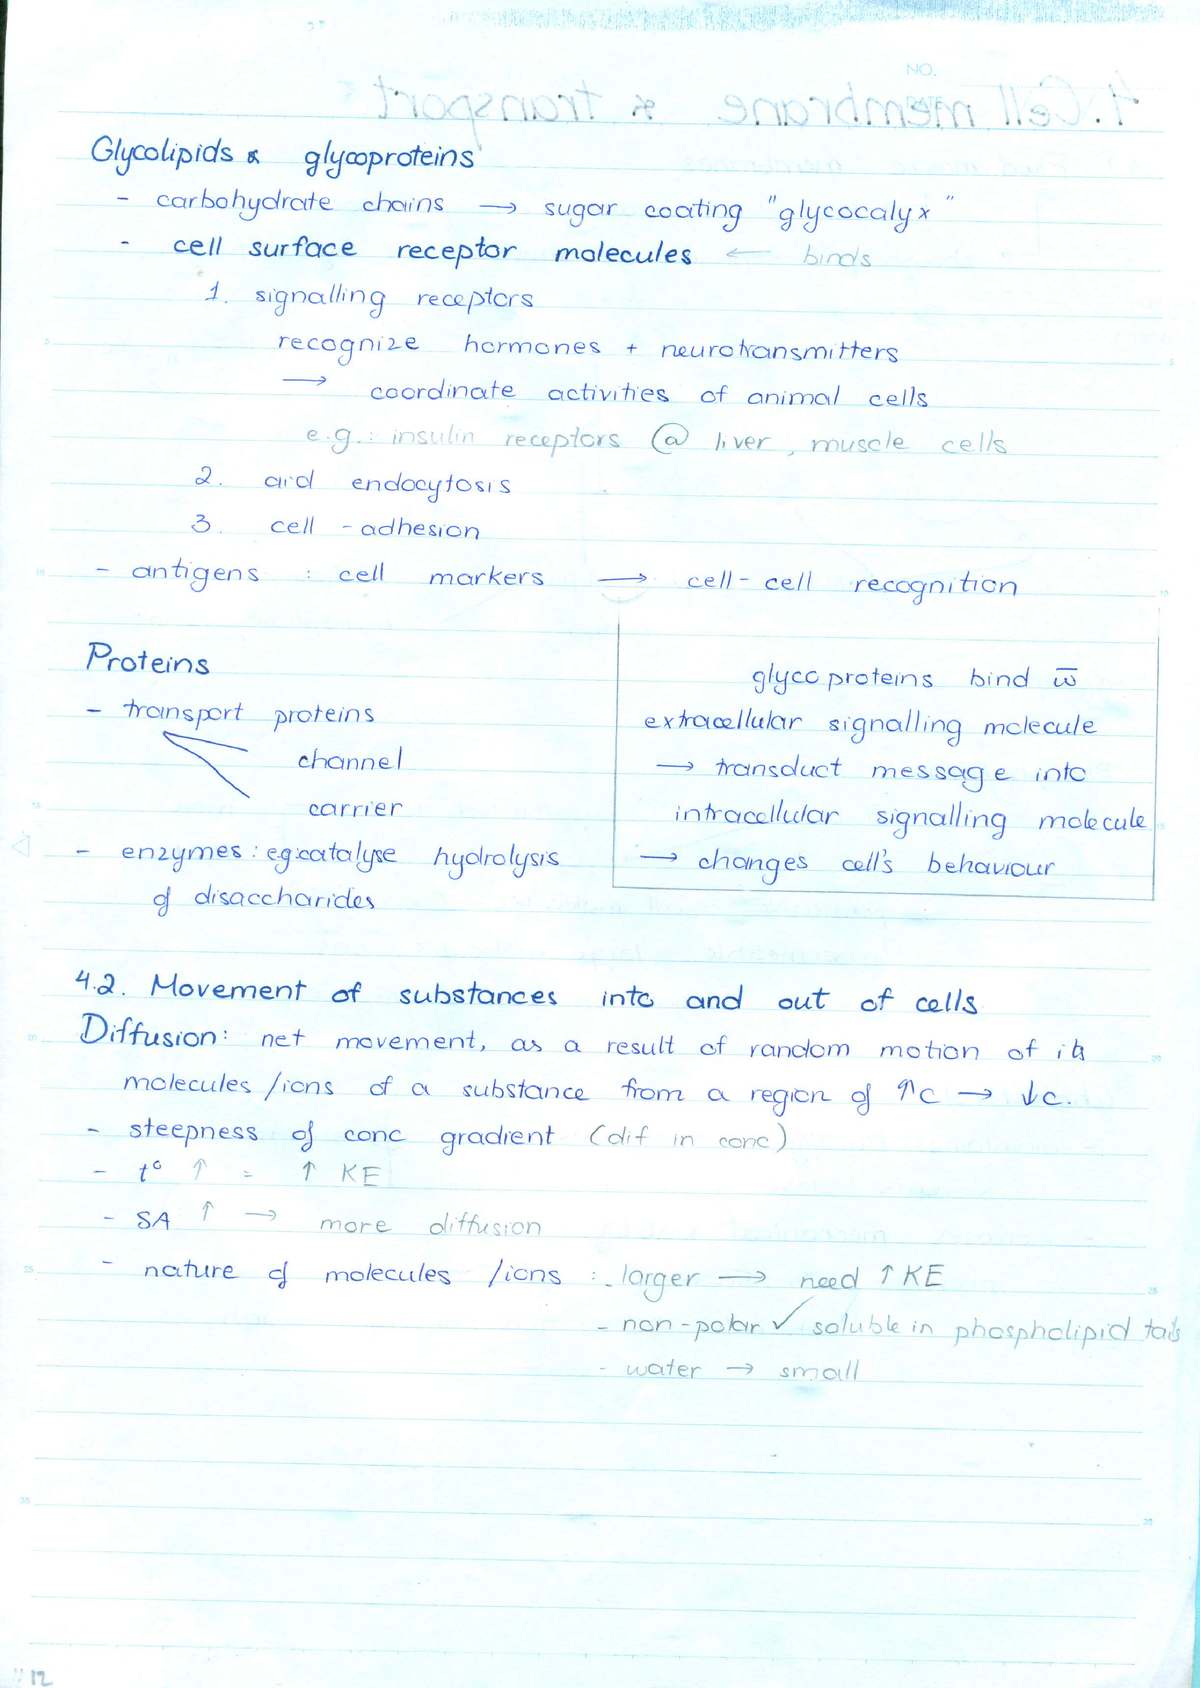 NO.
Glycolipids & glycoproteins
- carbohydrate chains → sugar coating "glycocalyx"
- cell surface receptor molecules ← binds
1. signalling receptors
recognize hormones + neurotransmitters
→ coordinate activities of animal cells
e.g.: insulin receptors @ liver, muscle cells
2. aid endocytosis
3. cell-adhesion
- antigens : cell markers → cell-cell recognition
Proteins
- transport proteins
channel
carrier
- enzymes: eg:catalyse hydrolysis
of disaccharides
glycoproteins bind w̅
extracellular signalling molecule
→ transduct message into
intracellular signalling molecule
→ changes cell's behaviour
4.2. Movement of substances into and out of cells
Diffusion: net movement, as a result of random motion of its
molecules/ions of a substance from a region of ↑C → ↓C.
- steepness of conc gradient (dif in conc)
- t° ↑ = ↑ KE
- SA ↑ → more diffusion
- nature of molecules /ions : - larger → need ↑ KE
- non-polar ✓ soluble in phospholipid tails
- water → small
12